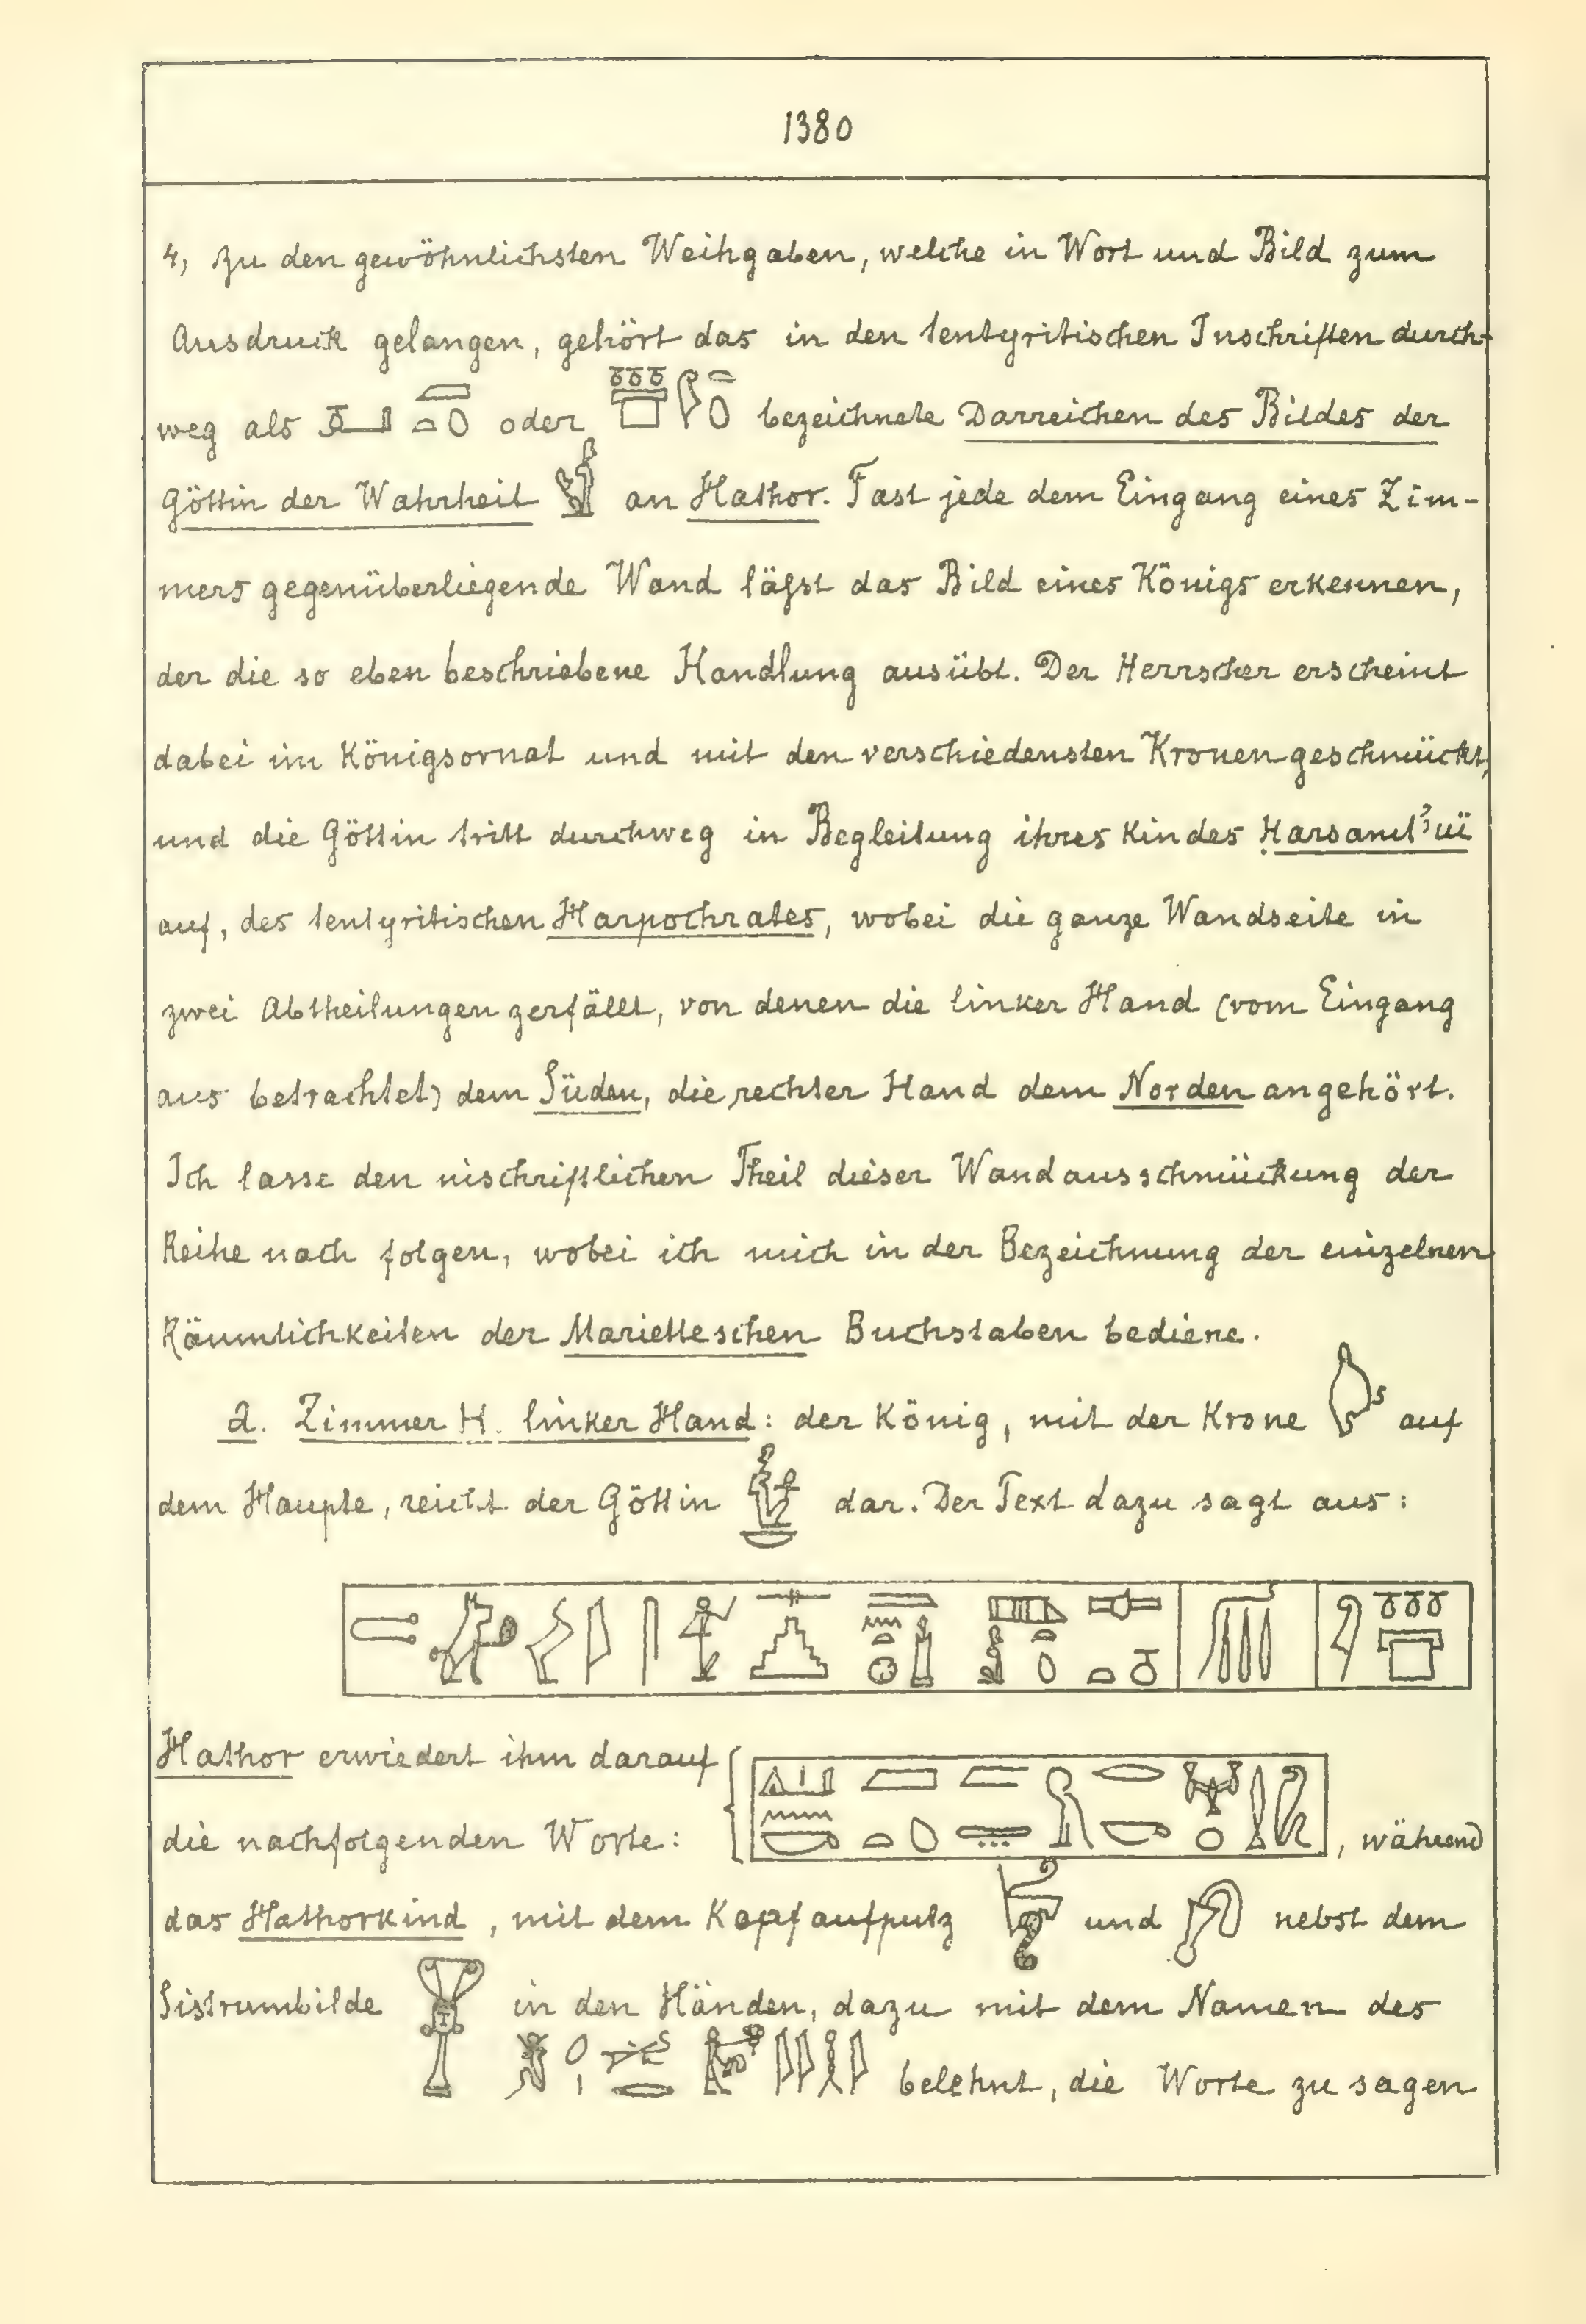 1380
4, Zu den gewöhnlichsten Weihgaben, welche in Wort und Bild zum
Ausdruck gelangen, gehört das in den tentyritischen Inschriften durch-
weg als oder bezeichnete Darreichen des Bildes der
Göttin der Wahrheit an Hathor. Fast jede dem Eingang eines Zim-
mers gegenüberliegende Wand läſst das Bild eines Königs erkennen,
der die so eben beschriebene Handlung ausübt. Der Herrscher erscheint
dabei im Königsornat und mit den verschiedensten Kronen geschmückt,
und die Göttin tritt durchweg in Begleitung ihres Kindes
auf, des tentyritischen Harpochrates, wobei die ganze Wandseite in
zwei Abtheilungen zerfällt, von denen die linker Hand (vom Eingang
aus betrachtet) dem Süden, die rechter Hand dem Norden angehört.
Ich lasse den inschriftlichen Theil dieser Wandausschmückung der
Reihe nach folgen, wobei ich mich in der Bezeichnung der einzelnen
Räumlichkeiten der Marietteschen Buchstaben bediene.
a. Zimmer H. linker Hand: der König, mit der Krone auf
dem Haupte, reicht der Göttin dar. Der Text dazu sagt aus:
Hathor erwiedert ihm darauf
die nachfolgenden Worte: , während
das Hathorkind, mit dem Kopfaufputz und nebst dem
Sistrumbilde in den Händen, dazu mit dem Namen des
belehnt, die Worte zu sagen